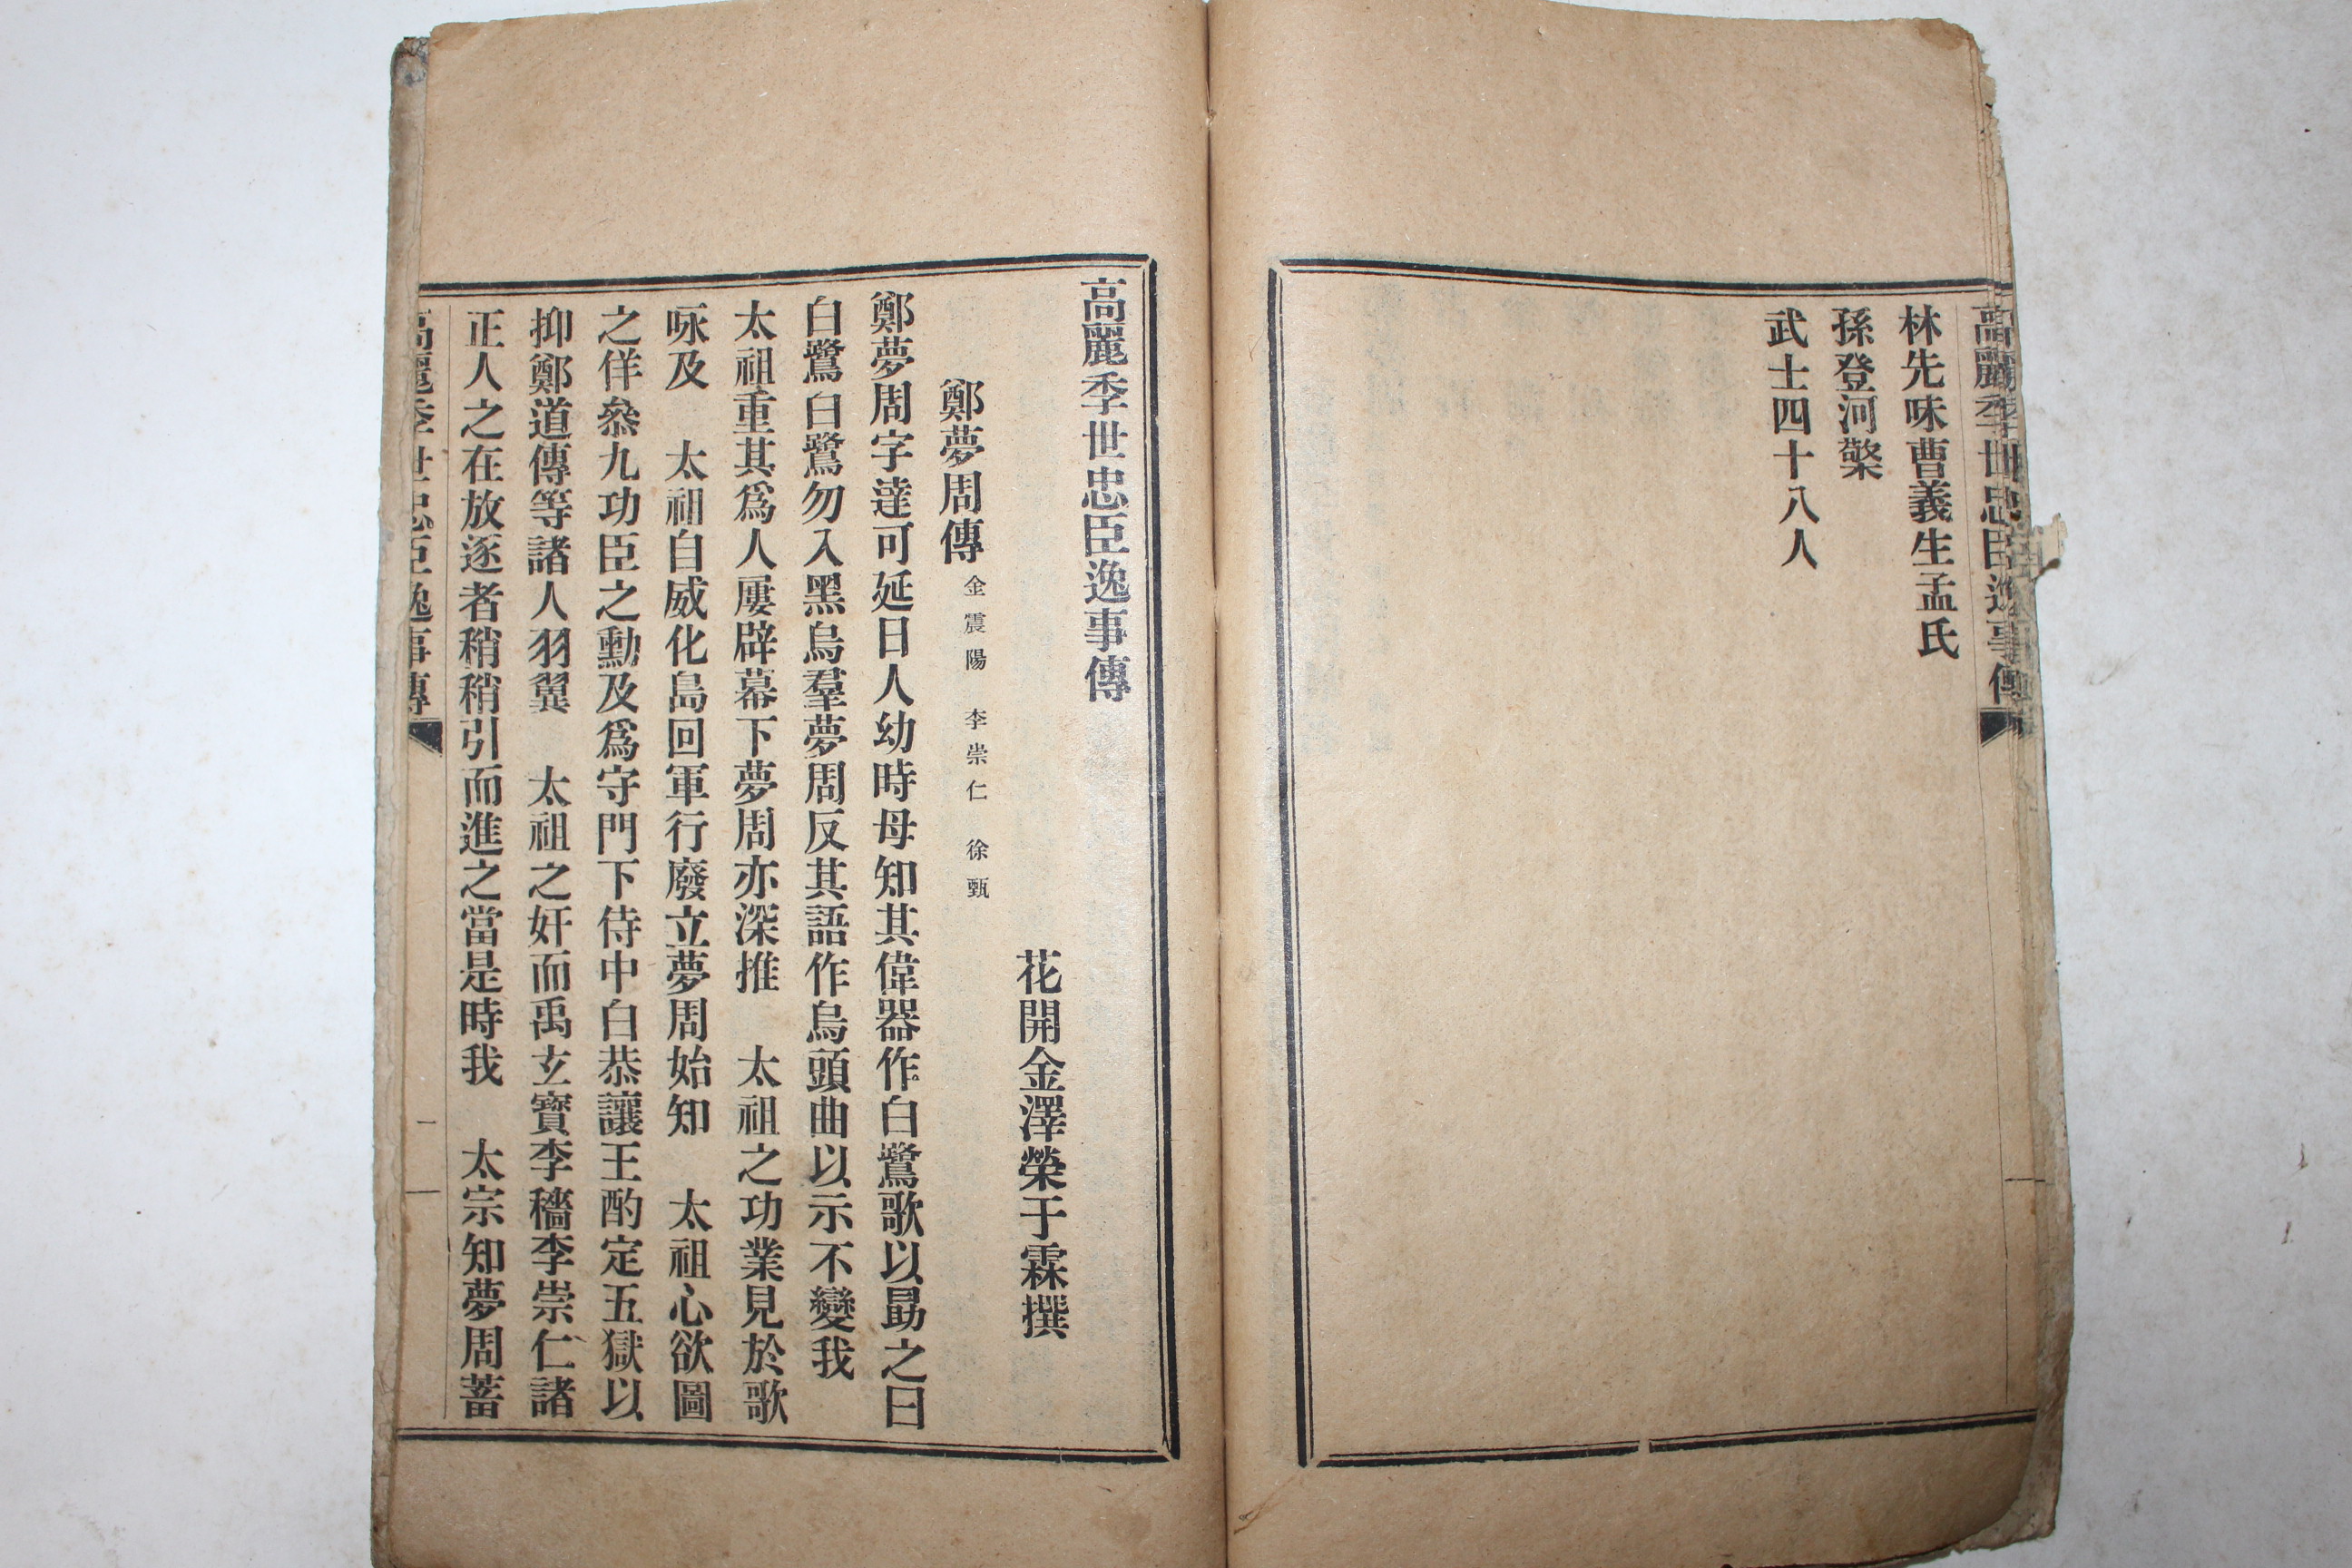 高麗季世忠臣逸事傳
林先味曹義生孟氏
孫登河檠
武士四十八人
高麗季世忠臣逸事傳
花開金澤榮于霖撰
鄭夢周傳 金震陽 李崇仁 徐甄
鄭夢周字達可延日人幼時母知其偉器作白鷺歌以勗之曰
白鷺白鷺勿入黑烏羣夢周反其語作烏頭曲以示不變我
太祖重其爲人屢辟幕下夢周亦深推 太祖之功業見於歌
咏及 太祖自威化島回軍行廢立夢周始知 太祖心欲圖
之佯叅九功臣之勳及爲守門下侍中白恭讓王酌定五獄以
抑鄭道傳等諸人羽翼 太祖之奸而禹玄寶李穡李崇仁諸
正人之在放逐者稍稍引而進之當是時我 太宗知夢周蓄
高麗季世忠臣逸事傳 一